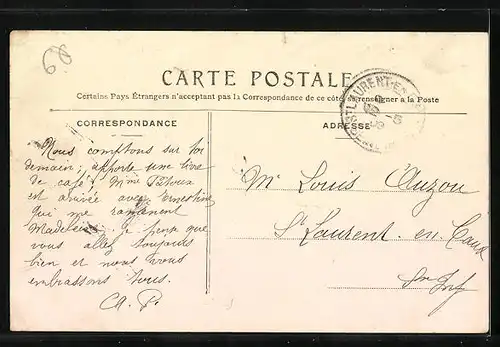 CARTE POSTALE
Certains Pays Étrangers n'acceptant pas la Correspondance de ce côté, se renseigner à la Poste
CORRESPONDANCE
ADRESSE
Nous comptons sur toi
demain; apporte une livre
de café; Mme
est arrivée avec Ernestine
qui me ramènent
Madeleine. Je pense que
vous allez toujours
bien et nous vous
embrassons tous.
A. P.
Mr Louis Auzou
St Laurent en Caux
Sne Infre
ST LAURENT-EN-